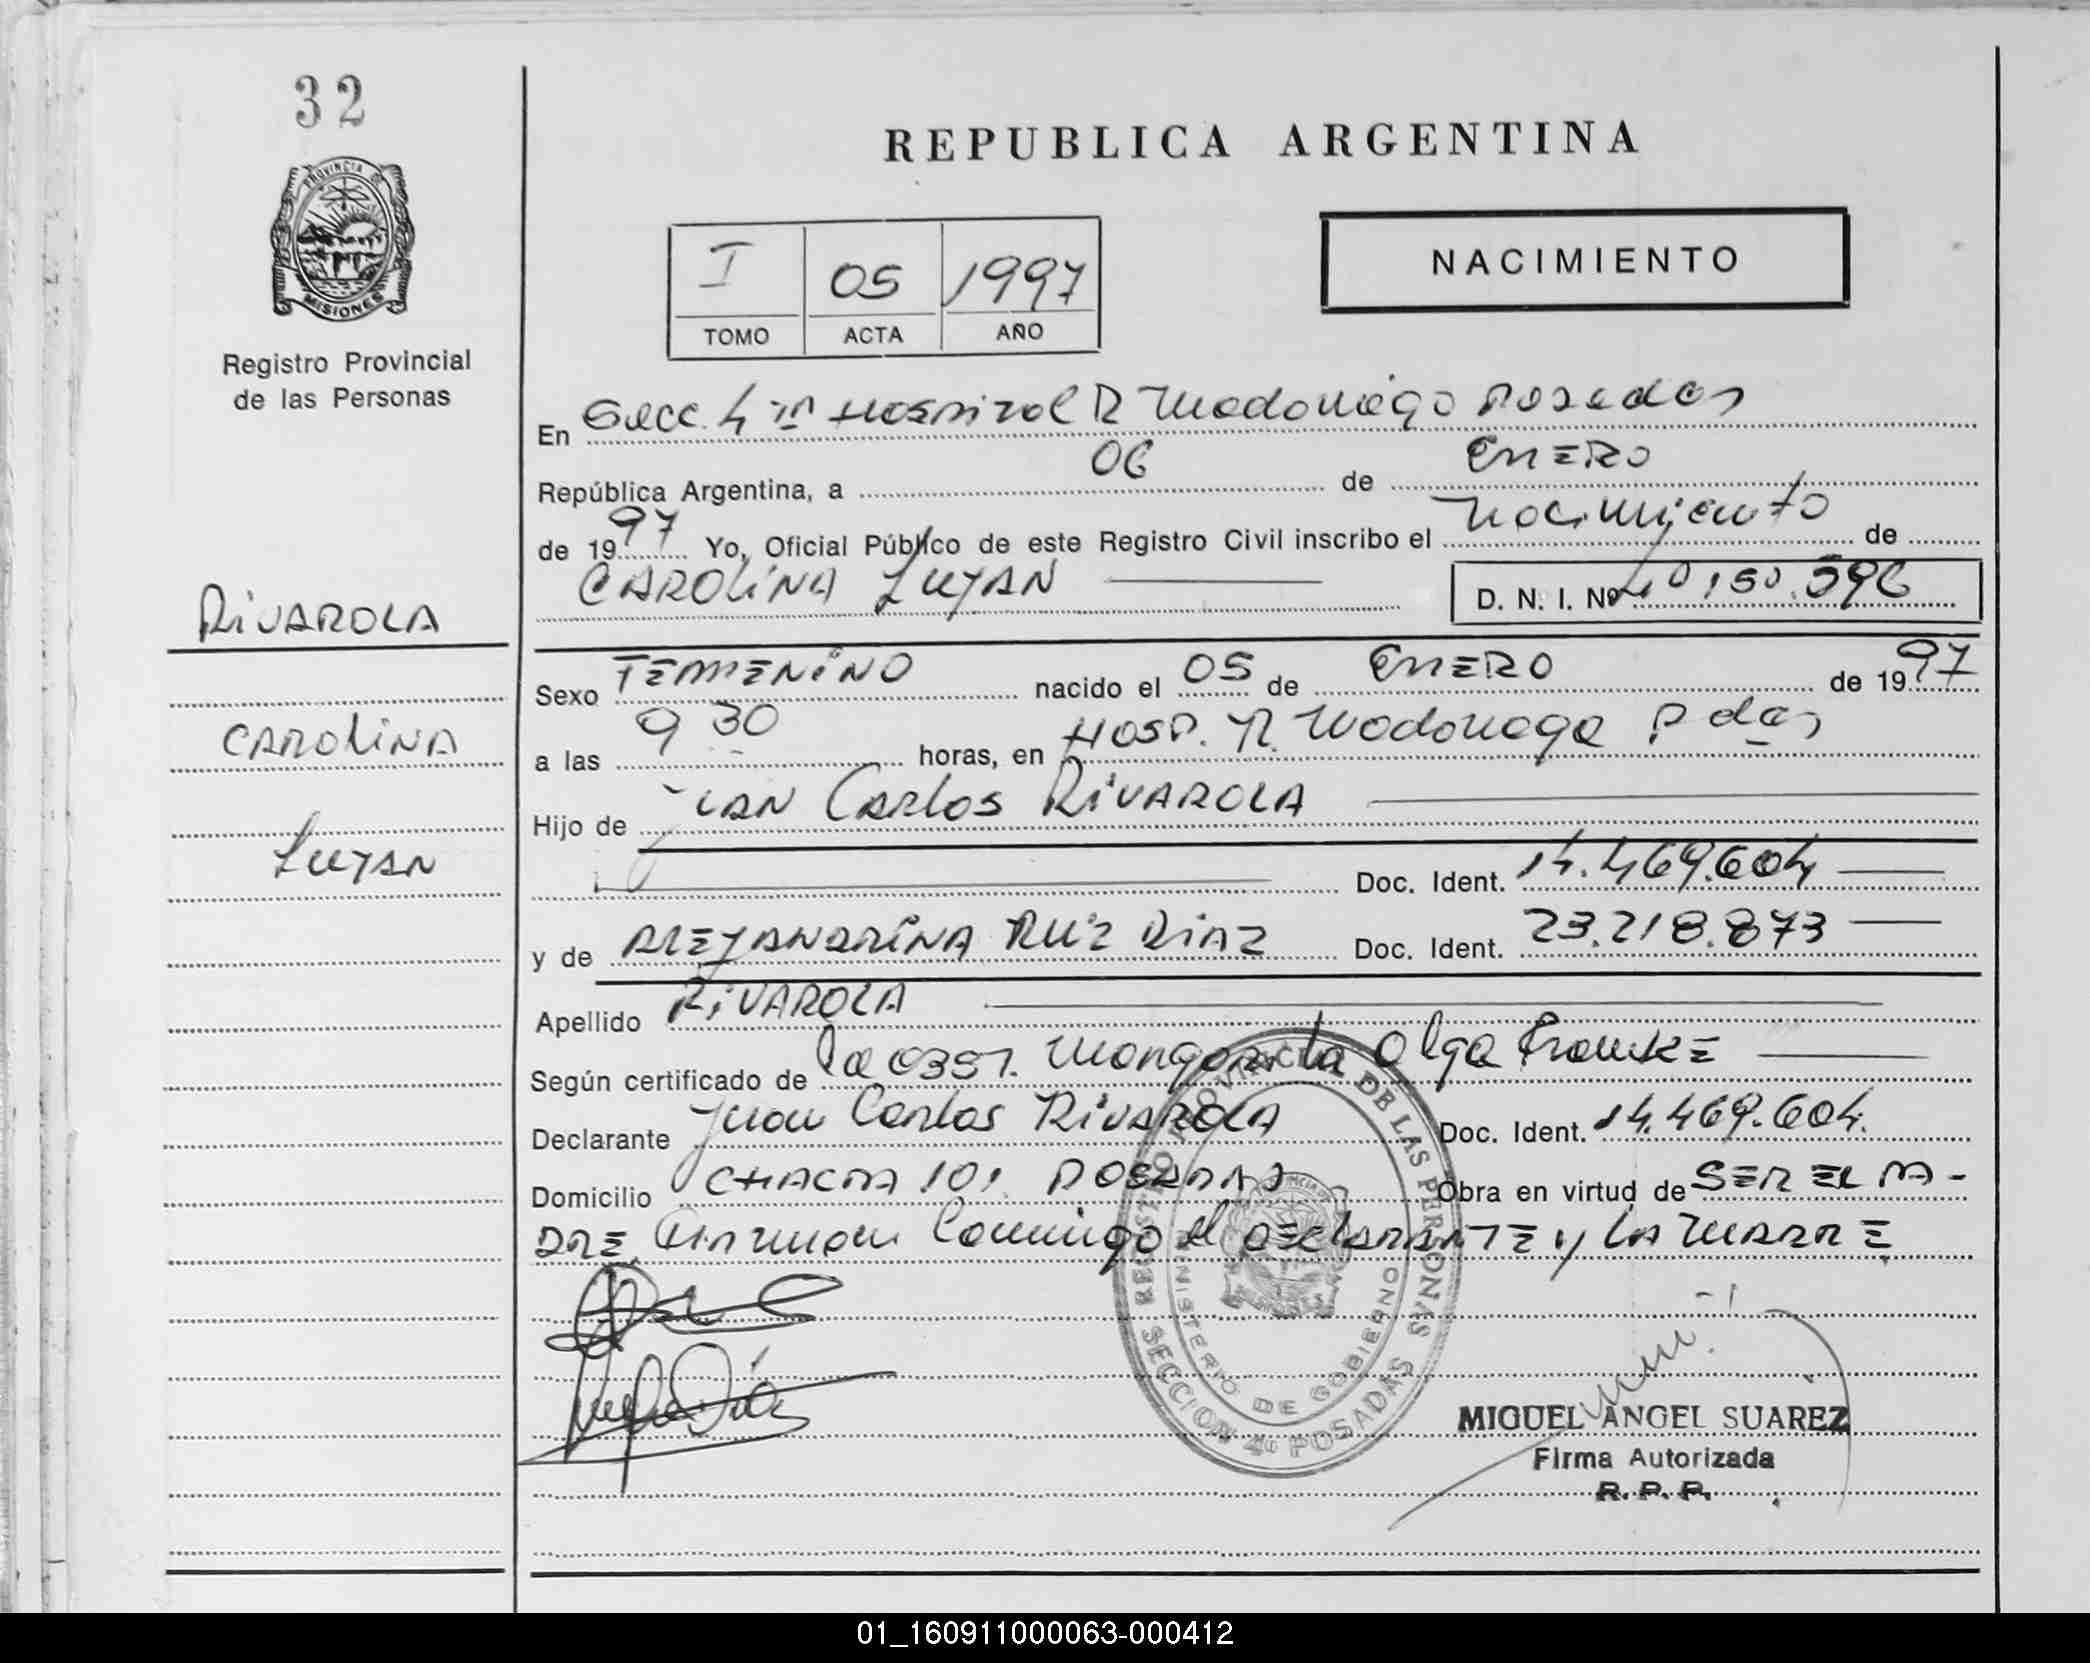 32
PROVINCIA DE
MISIONES
Registro Provincial
de las Personas
RIVAROLA
CAROLINA
LUJAN
REPUBLICA ARGENTINA
I 05 1997
TOMO ACTA AÑO
NACIMIENTO
En Secc. 4ta Hospital R Madariaga Posadas
República Argentina, a 06 de ENERO
de 1997 Yo, Oficial Público de este Registro Civil inscribo el Nacimiento de
CAROLINA LUJAN D. N. I. Nº 40.150.596
Sexo FEMENINO nacido el 05 de ENERO de 1997
a las 9 30 horas, en Hosp. R. Madariaga Pdas
Hijo de Juan Carlos RIVAROLA
Doc. Ident. 14.469.604
y de ALEJANDRINA RUIZ DIAZ Doc. Ident. 23.218.873
Apellido RIVAROLA
Según certificado de la obst. Margarita Olga
Declarante Juan Carlos RIVAROLA Doc. Ident. 14.469.604.
Domicilio CHACRA 101 POSADAS Obra en virtud de SER EL PA-
DRE. Firman Conmigo el DEClARANTE y LA MADRE
REGISTRO PROVINCIAL DE LAS PERSONAS
MINISTERIO DE GOBIERNO
SECCION 4º POSADAS
MIGUEL ANGEL SUAREZ
Firma Autorizada
R. P. P.
01_160911000063-000412